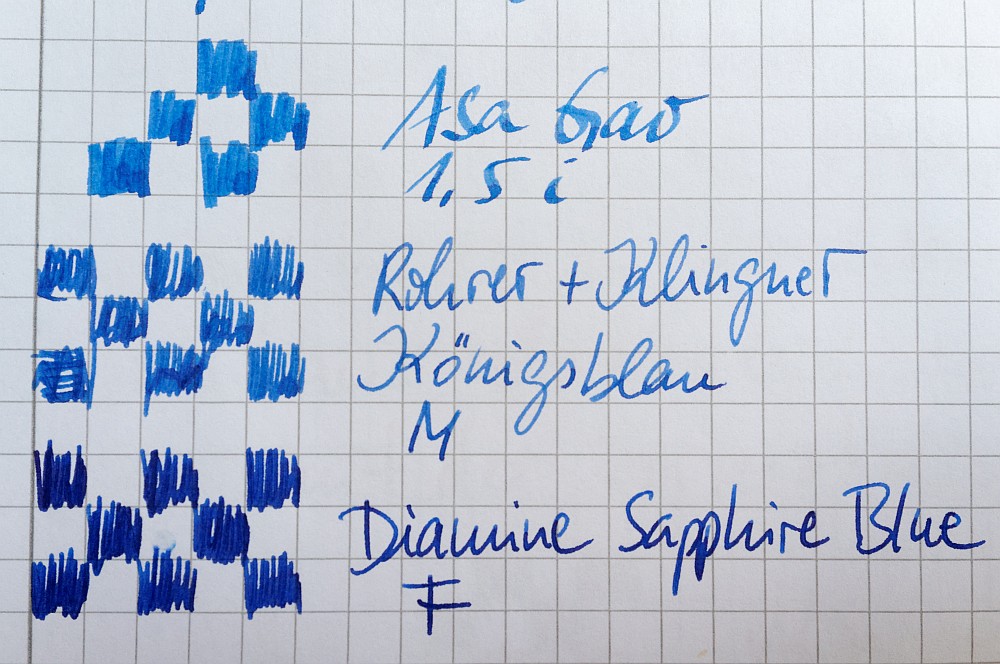 Asa Gao
1,5 i
Rohrer + Klingner
Königsblau
M
Diamine Sapphire Blue
F